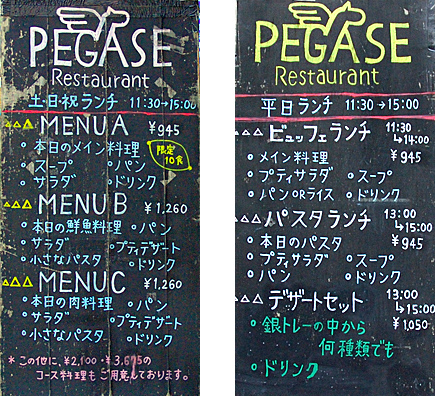 PEGASE
Restaurant
土日祝ランチ 11:30→15:00
MENU A ¥945
・本日のメイン料理 限定10食
・スープ ・パン
・サラダ ・ドリンク
MENU B ¥1,260
・本日の鮮魚料理 ・パン
・サラダ ・プティデザート
・小さなパスタ ・ドリンク
MENU C ¥1,260
・本日の肉料理 ・パン
・サラダ ・プティデザート
・小さなパスタ ・ドリンク
*この他に、¥2,100-¥3,675の
コース料理もご用意しております。
PEGASE
Restaurant
平日ランチ 11:30→15:00
ビュッフェランチ 11:30→14:00
・メイン料理 ¥945
・プティサラダ ・スープ
・パンORライス ・ドリンク
パスタランチ 13:00→15:00
・本日のパスタ ¥945
・プティサラダ ・スープ
・パン ・ドリンク
デザートセット 13:00→15:00
・銀トレーの中から ¥1,050
何種類でも
・ドリンク